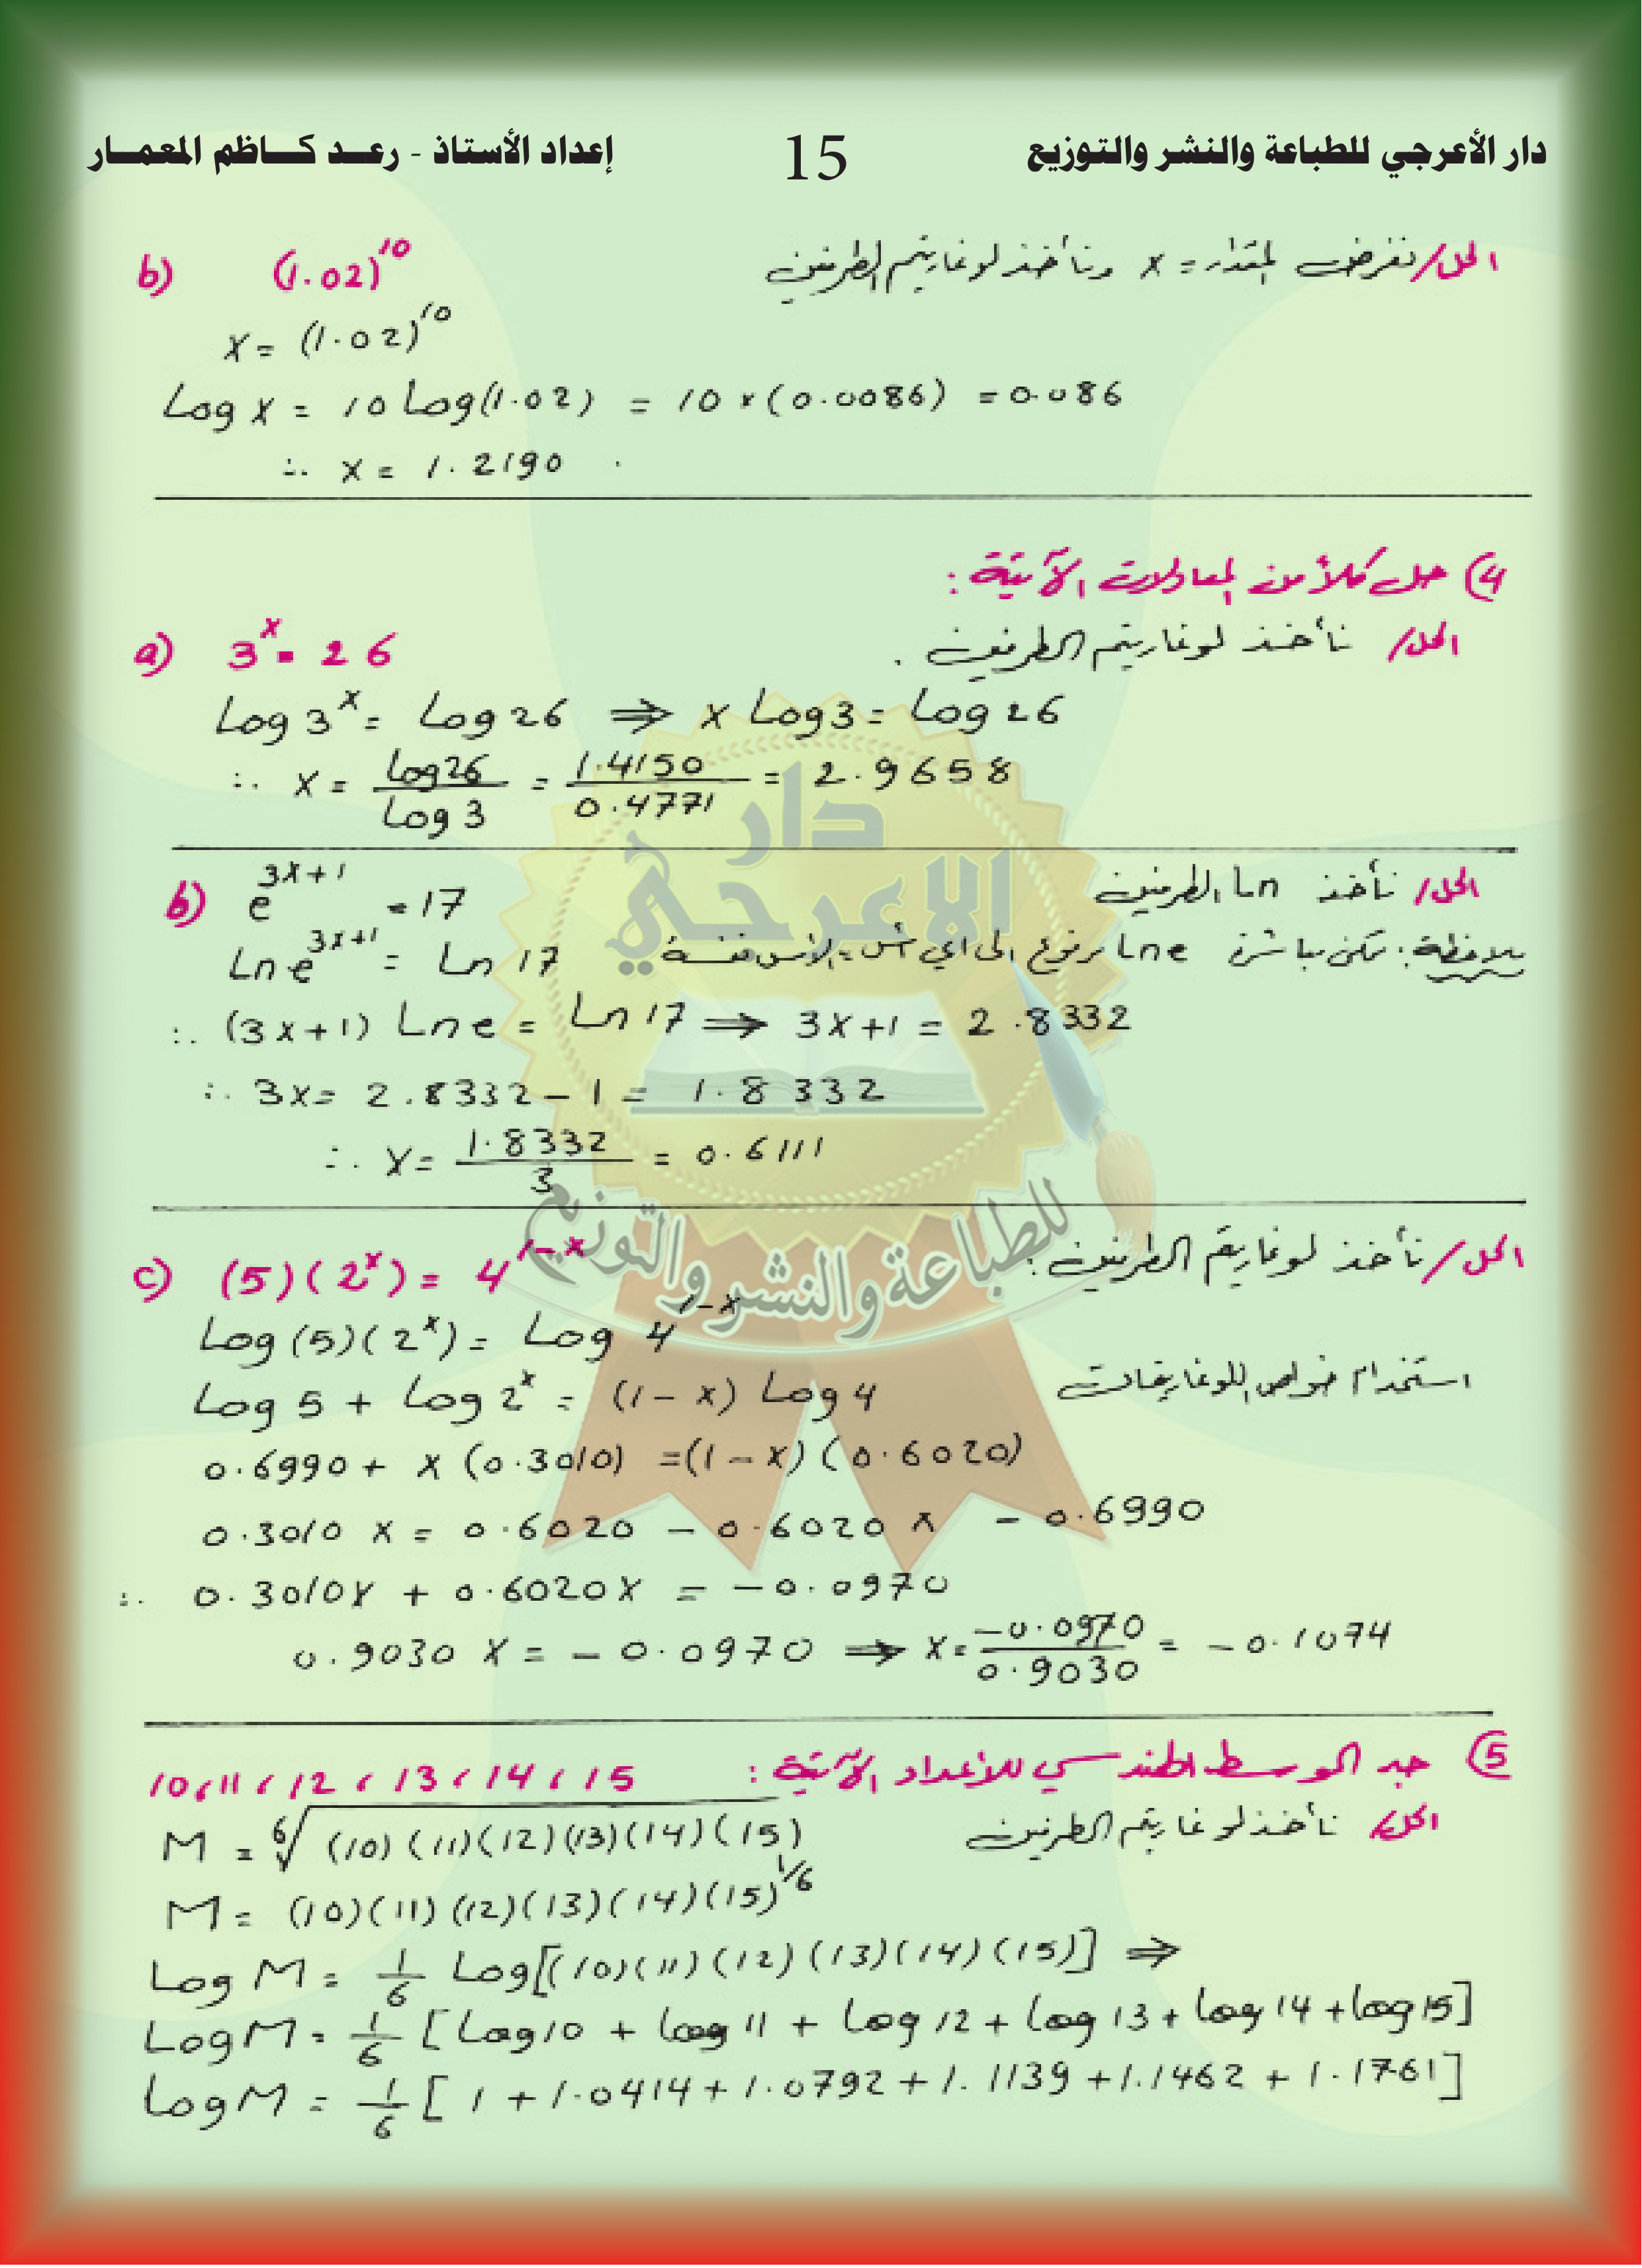 دار الأعرجي للطباعة والنشر والتوزيع 15 إعداد الأستاذ - رعد كاظم المعمار
b) (1.02)^10 الحل/ نفرض المقدار = x ونأخذ لوغاريتم الطرفين
x = (1.02)^10
Log x = 10 Log(1.02) = 10 × (0.0086) = 0.086
∴ x = 1.2190
4) حل كلاً من المعادلات الآتية :
a) 3^x = 26 الحل/ نأخذ لوغاريتم الطرفين .
Log 3^x = Log 26 ⇒ x Log 3 = Log 26
∴ x = Log 26 / Log 3 = 1.4150 / 0.4771 = 2.9658
b) e^(3x+1) = 17 الحل/ نأخذ Ln الطرفين
Ln e^(3x+1) = Ln 17 ملاحظة : مباشرة Ln e مرفوع الى اي أس = الاس نفسه
∴ (3x+1) Ln e = Ln 17 ⇒ 3x+1 = 2.8332
∴ 3x = 2.8332 – 1 = 1.8332
∴ x = 1.8332 / 3 = 0.6111
c) (5)(2^x) = 4^(1-x) الحل/ نأخذ لوغاريتم الطرفين :
Log (5)(2^x) = Log 4^(1-x)
Log 5 + Log 2^x = (1 – x) Log 4 استخدام خواص اللوغاريتمات
0.6990 + x (0.3010) = (1 – x)(0.6020)
0.3010 x = 0.6020 – 0.6020 x – 0.6990
∴ 0.3010x + 0.6020x = –0.0970
0.9030 x = –0.0970 ⇒ x = –0.0970 / 0.9030 = –0.1074
5) جد الوسط الهندسي للأعداد الآتية : 10، 11، 12، 13، 14، 15
M = ⁶√(10)(11)(12)(13)(14)(15) الحل/ نأخذ لوغاريتم الطرفين
M = (10)(11)(12)(13)(14)(15)^1/6
Log M = 1/6 Log[(10)(11)(12)(13)(14)(15)] ⇒
Log M = 1/6 [Log 10 + Log 11 + Log 12 + Log 13 + Log 14 + Log 15]
Log M = 1/6 [1 + 1.0414 + 1.0792 + 1.1139 + 1.1462 + 1.1761]
دار
الاعرجي
للطباعة والنشر والتوزيع